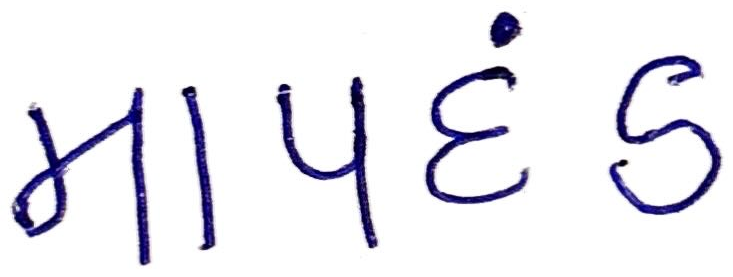 માપદંડ